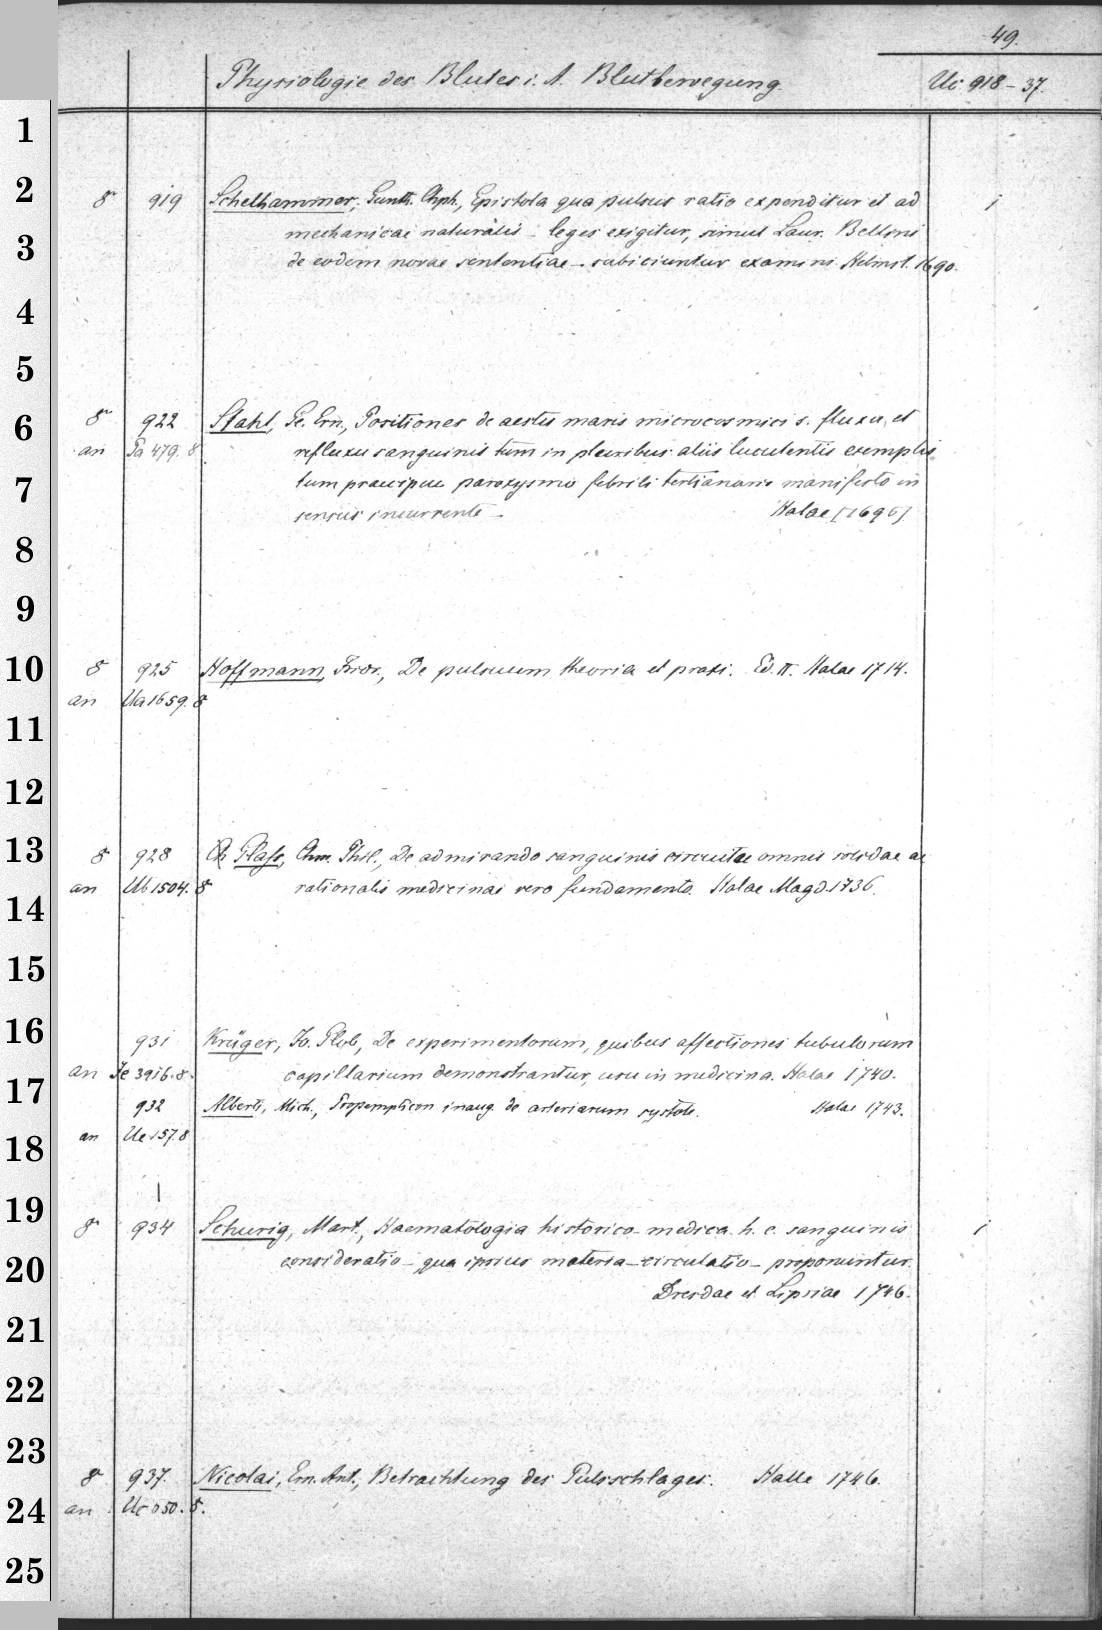 49.
Physiologie des Blutes i. A. Blutbewegung. Uc 918-37.
1
2
3
4
5
6
7
8
9
10
11
12
13
14
15
16
17
18
19
20
21
22
23
24
25
8° 919 Schelhammer, Gunth. Chph., Epistola qua pulsus ratio expenditur et ad 1
mechanicae naturalis - leges exigitur, simul Laur. Bellini
de eodem novae sententiae - subiciuntur examini. Helmst. 1690.
8° 922 Stahl, Ge. Ern., Positiones de aestu maris microcosmici s. fluxu et
an Pa 479. 8 refluxu sanguinis tum in pluribus aliis luculentis exemplis
tum praecipue paroxysmo febrili tertianario manifesto in
sensus incurrente - Halae [1696]
8° 925 Hoffmann, Frdr., De pulsuum theoria et praxi. Ed. II. Halae 1714.
an Ua 1659. 8
8 928 Plass, Chm. Phil., De admirando sanguinis circuitu omnis solidae ac
an Ub 1504. 8 rationalis medicinae vero fundamento. Halae Magd. 1736.
931 Krüger, Jo. Glob, De experimentorum, quibus affectiones tubulorum
an Je 3916. 8. capillarium demonstrantur, usu in medicina. Halae 1740.
932 Alberti, Mich., Propempticon inaug. de arteriarum systole. Halae 1743.
an Ue 157. 8
8° 934 Schurig, Mart., Haematologia historico-medica. h. e. sanguinis 1
consideratio - qua ipsius materia - circulatio - proponuntur.
Dresdae et Lipsiae 1746.
8° 937. Nicolai, Ern. Ant., Betrachtung des Pulsschlages. Halle 1746.
an Uc 050. 8.